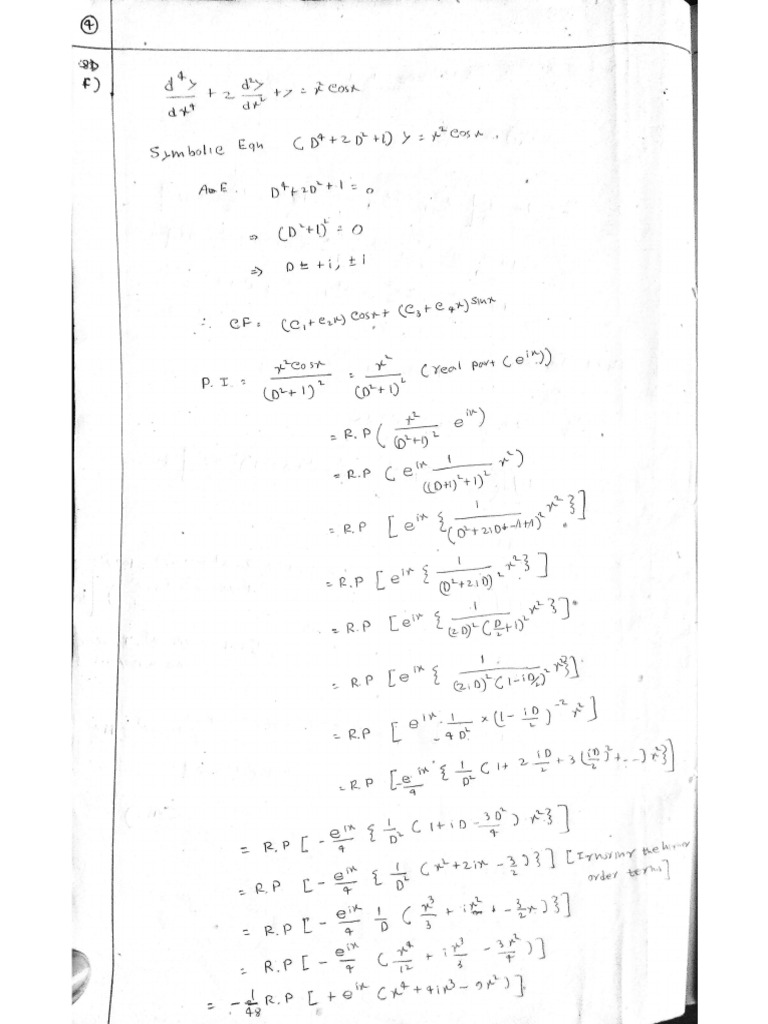 ④
8D
F) d⁴y/dx⁴ + 2 d²y/dx² + y = x² cosx
Symbolic Eqn (D⁴ + 2D² + 1) y = x² cosx.
A.E. D⁴ + 2D² + 1 = 0
⇒ (D² + 1)² = 0
⇒ D = +i, ±i
∴ CF = (C₁ + C₂x) cosx + (C₃ + C₄x) sinx
P.I = x² cosx/(D² + 1)² = x²/(D² + 1)² (real part (e^{ix}))
= R.P ( x²/(D² + 1)² e^{ix} )
= R.P ( e^{ix} 1/((D+i)² + 1)² x² )
= R.P [ e^{ix} { 1/(D² + 2iD + -1+1)² x² } ]
= R.P [ e^{ix} { 1/(D² + 2iD)² x² } ]
= R.P [ e^{ix} { 1/(2D)² (D/2 + 1)² x² } ]
= R.P [ e^{ix} { 1/(2iD)² (1 - iD/2)² x² } ]
= R.P [ e^{ix} · 1/-4D² × (1 - iD/2)^{-2} x² ]
= R.P [ -e^{ix}/4 { 1/D² (1 + 2 iD/2 + 3 (iD/2)² + ...) x² } ]
= R.P [ - e^{ix}/4 { 1/D² (1 + iD - 3D²/4) x² } ]
= R.P [ - e^{ix}/4 { 1/D² (x² + 2ix - 3/2) } ] [Ignoring the higher order terms]
= R.P [ - e^{ix}/4 1/D ( x³/3 + ix² - 3/2 x ) } ]
= R.P [ - e^{ix}/4 ( x⁴/12 + i x³/3 - 3x²/4 ) ]
= - 1/48 R.P [ + e^{ix} (x⁴ + 4ix³ - 9x²) ]